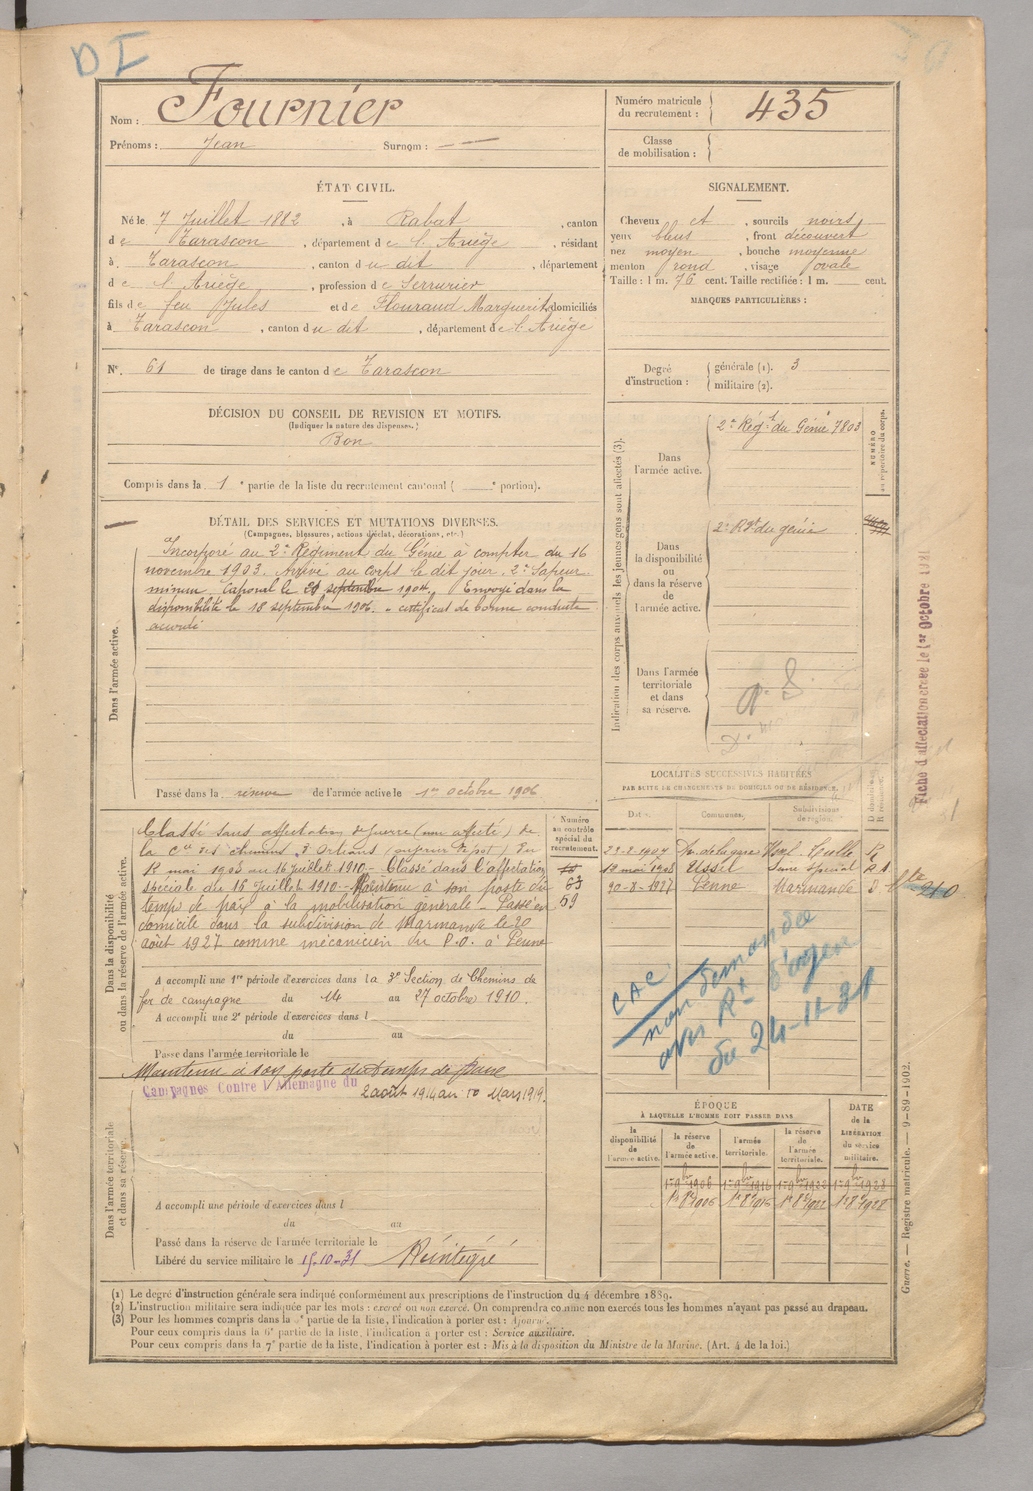 DI
Nom : Fournier
Prénoms : Jean Surnom : —
Numéro matricule du recrutement : 435
Classe de mobilisation :
ÉTAT CIVIL.
Né le 7 Juillet 1882, à Rabat, canton
de Tarascon, département de l'Ariège, résidant
à Tarascon, canton du dit, département
de l'Ariège, profession de Serrurier
fils de feu Jules et de Flouraud Marguerite domiciliés
à Tarascon, canton du dit, département de l'Ariège
N° 61 de tirage dans le canton de Tarascon
SIGNALEMENT.
Cheveux et, sourcils noirs
yeux bleus, front découvert
nez moyen, bouche moyenne
menton rond, visage ovale
Taille : 1 m. 76 cent. Taille rectifiée : 1 m. cent.
MARQUES PARTICULIÈRES :
Degré d'instruction : générale (1). 3
militaire (2).
DÉCISION DU CONSEIL DE REVISION ET MOTIFS.
(Indiquer la nature des dispenses.)
Bon
Compris dans la 1e partie de la liste du recrutement cantonal ( e portion).
DÉTAIL DES SERVICES ET MUTATIONS DIVERSES.
(Campagnes, blessures, actions d'éclat, décorations, etc.)
Dans l'armée active.
Incorporé au 2e Régiment du Génie à compter du 16
novembre 1903. Arrivé au corps le dit jour. 2e Sapeur
mineur. Caporal le 21 septembre 1904. Envoyé dans la
disponibilité le 18 septembre 1906. certificat de bonne conduite
accordé
Passé dans la réserve de l'armée active le 1er octobre 1906
Indication des corps auxquels les jeunes gens sont affectés (3).
NUMÉRO au répertoire du corps.
Dans l'armée active.
2e Régt du Génie 7803
Dans la disponibilité ou dans la réserve de l'armée active.
2e Rgt du génie
Dans l'armée territoriale et dans sa réserve.
Fiche d'affectation créée le 1er Octobre 1931
LOCALITÉS SUCCESSIVES HABITÉES
PAR SUITE DE CHANGEMENTS DE DOMICILE OU DE RÉSIDENCE.
Dates. Communes. Subdivisions de région. D domicile. R résidence.
19 mai 1908 Ussel
20-8-1927 Penne Marmande D
CAC
non demandée
avis Rt d'agen
du 24-11-31
Dans la disponibilité ou dans la réserve de l'armée active.
Numéro au contrôle spécial du recrutement.
63
59
Classé sans affectation de guerre (non affecté) de
la Cie des chemins d'Orléans
mai 1908 au 16 Juillet 1910 - Classé dans l'affectation
spéciale du 16 Juillet 1910 - Maintenu à son poste du
temps de paix à la mobilisation générale - Passé en
domicile dans la subdivision de Marmande le 20
août 1927 comme mécanicien du P.O. à Penne
A accompli une 1re période d'exercices dans la 3e Section de Chemins de
fer de campagne du 14 au 27 octobre 1910.
A accompli une 2e période d'exercices dans l
du au
Passé dans l'armée territoriale le
Maintenu à son poste du temps de paix
Campagnes Contre l'Allemagne du
2 août 1914 au 10 Mars 1919.
Dans l'armée territoriale et dans sa réserve.
A accompli une période d'exercices dans l
du au
Passé dans la réserve de l'armée territoriale le
Libéré du service militaire le 15-10-31 Réintégré
ÉPOQUE
À LAQUELLE L'HOMME DOIT PASSER DANS
la disponibilité de l'armée active. la réserve de l'armée active. l'armée territoriale. la réserve de l'armée territoriale.
DATE de la LIBÉRATION du service militaire.
1er 9bre 1906 1er 9bre 1916 1er 9bre 1922 1er 9bre 1928
1er 8bre 1906 1er 8bre 1916 1er 8bre 1922 1er 8bre 1928
(1) Le degré d'instruction générale sera indiqué conformément aux prescriptions de l'instruction du 4 décembre 1889.
(2) L'instruction militaire sera indiquée par les mots : exercé ou non exercé. On comprendra comme non exercés tous les hommes n'ayant pas passé au drapeau.
(3) Pour les hommes compris dans la 5e partie de la liste, l'indication à porter est : Ajourné.
Pour ceux compris dans la 6e partie de la liste, l'indication à porter est : Service auxiliaire.
Pour ceux compris dans la 7e partie de la liste, l'indication à porter est : Mis à la disposition du Ministre de la Marine. (Art. 4 de la loi.)
Guerre. — Registre matricule. — 9-89-1902.